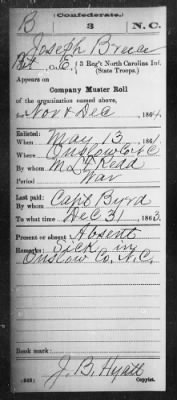 (Confederate.)
B 3 N.C.
Joseph Brice
Pvt, Co. E, 3 Reg't North Carolina Inf.
(State Troops.)
Appears on
Company Muster Roll
of the organization named above,
for Nov & Dec, 1864.
Enlisted:
When May 13, 1861
Where Onslow Co N.C.
By whom M. L. F. Redd
Period War
Last paid:
By whom Capt Byrd
To what time Dec 31, 1863.
Present or absent Absent
Remarks: Sick in
Onslow Co, N.C.
Book mark:
J. B. Hyatt
Copyist.